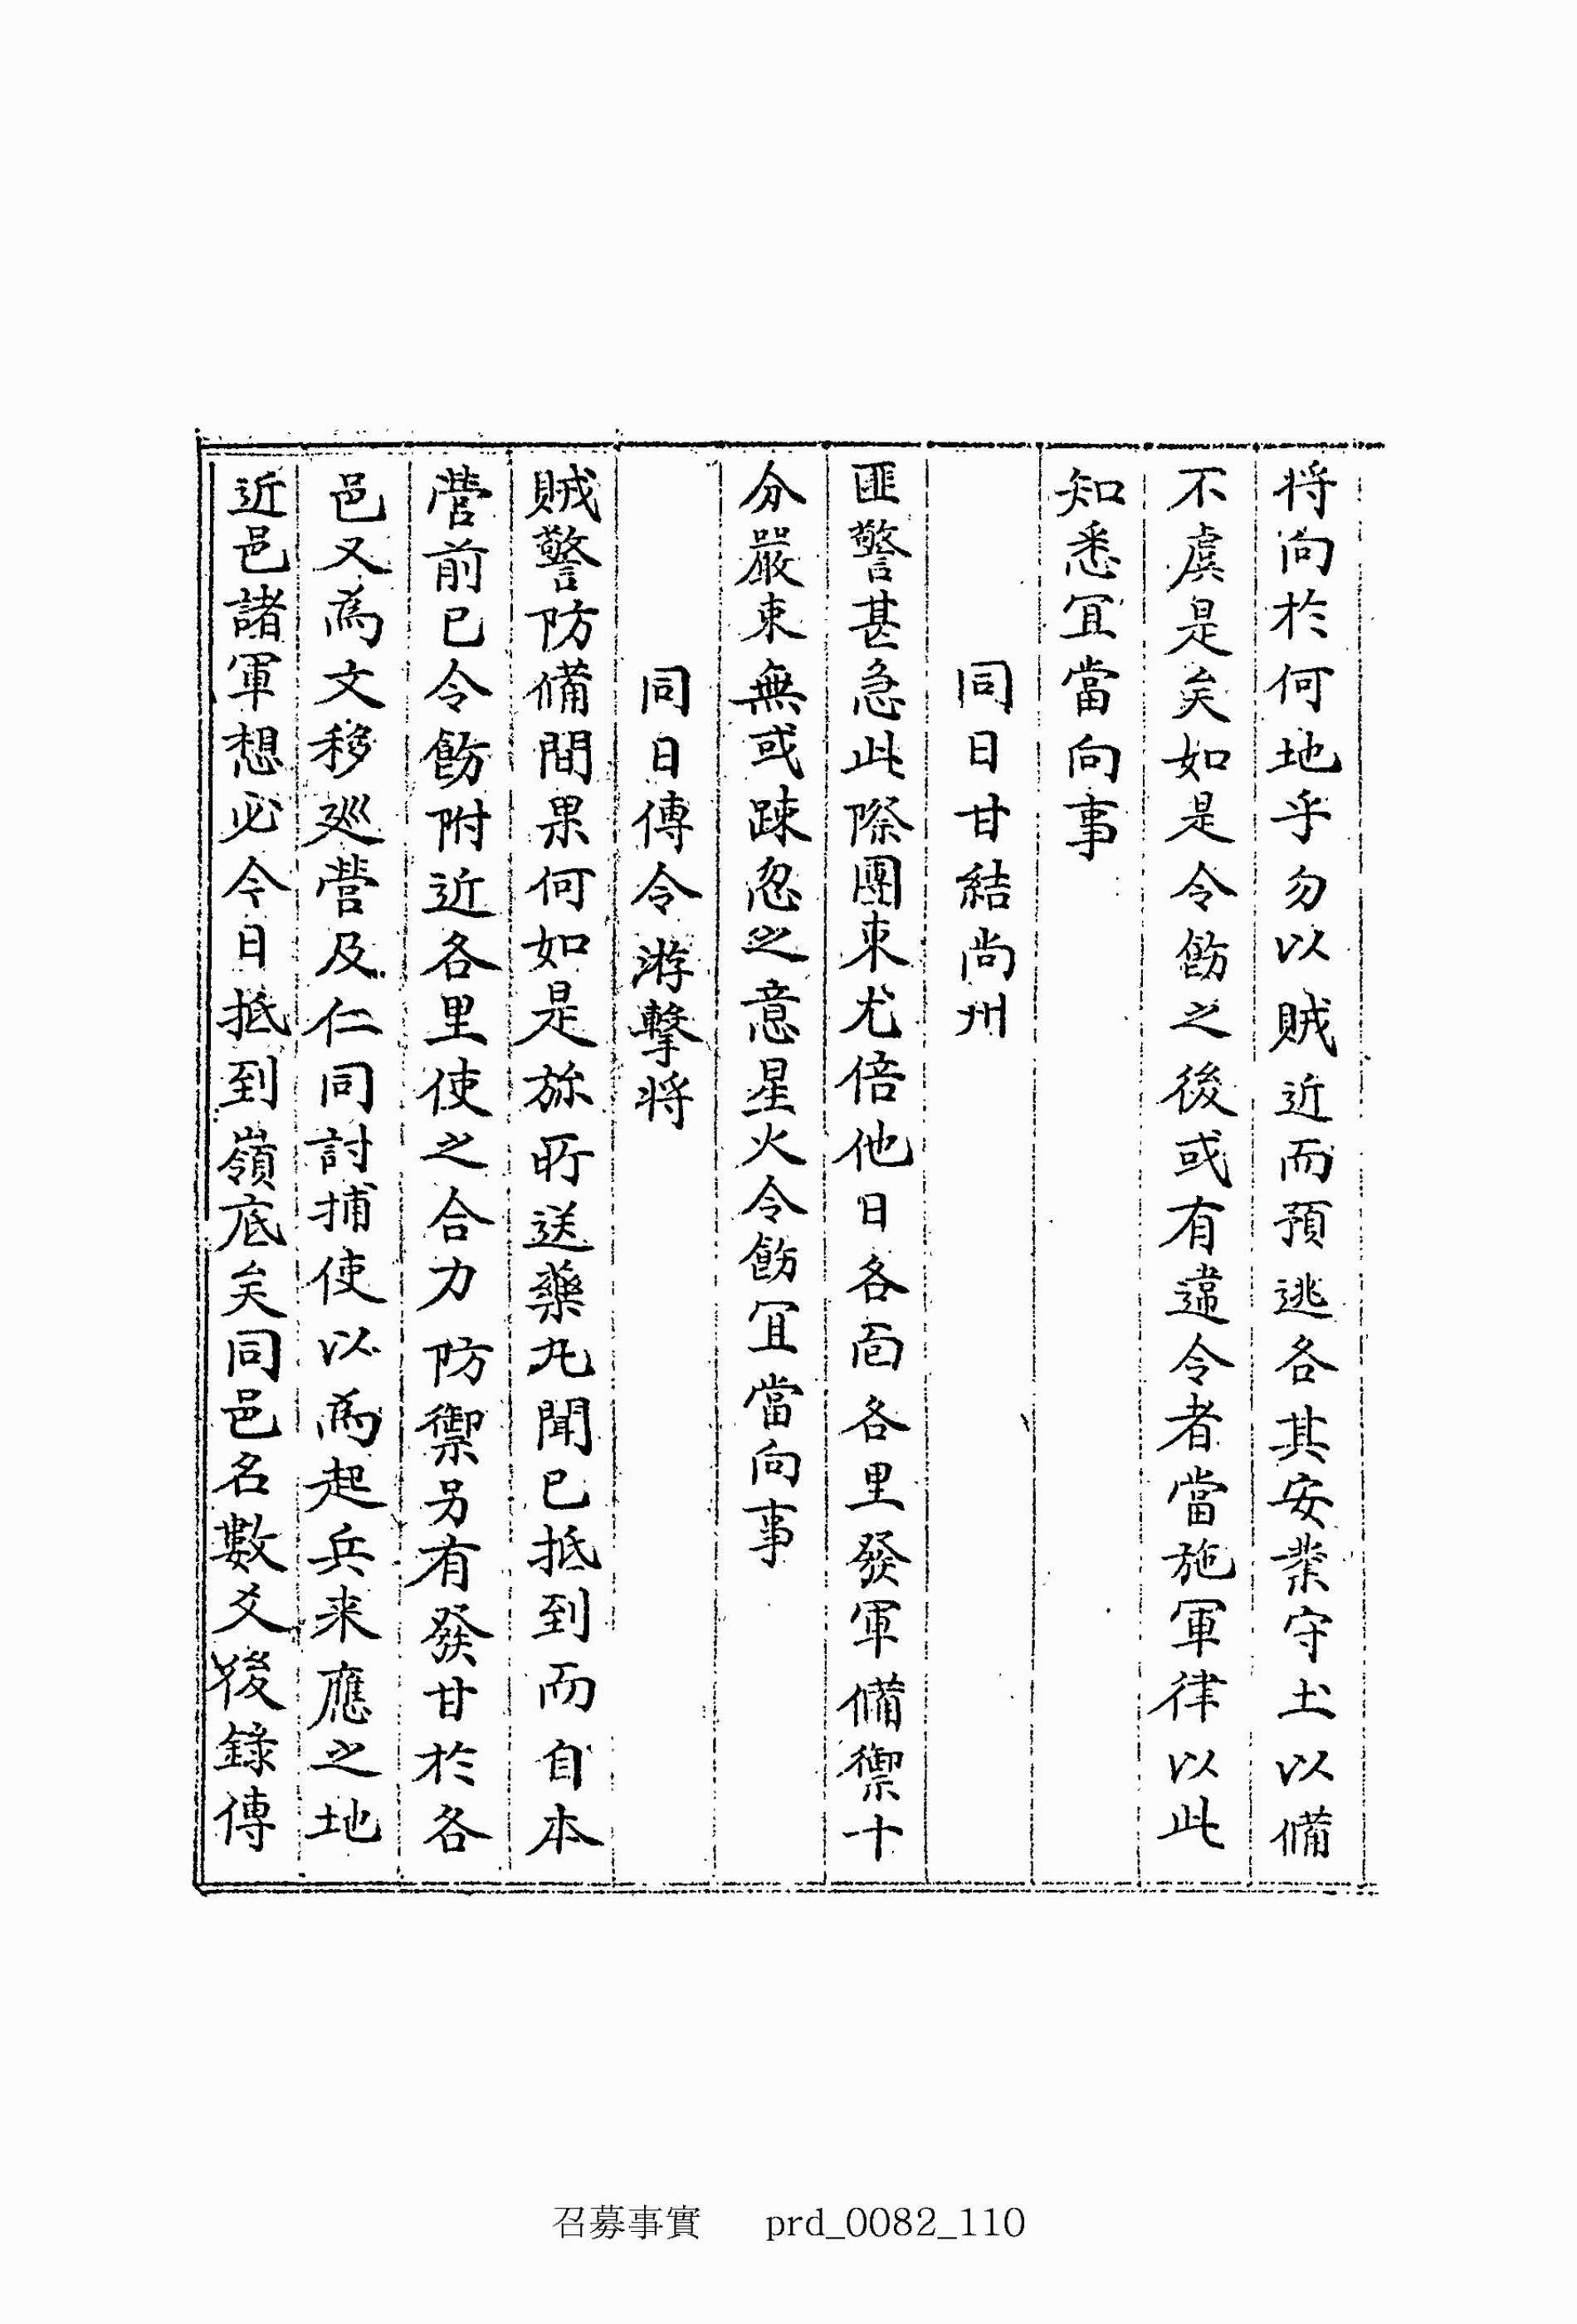 将向於何地乎勿以賊近而預逃各其安業守土以備
不虞是矣如是令飭之後或有違令者當施軍律以此
知悉宜當向事
同日甘結尚州
匪警甚急此際團束尤倍他日各面各里發軍備禦十
分嚴束無或踈忽之意星火令飭宜當向事
同日傳令游擊将
賊警防備間果何如是旀所送藥丸聞已抵到而自本
營前已令飭附近各里使之合力防禦另有發甘於各
邑又為文移巡營及仁同討捕使以為起兵来應之地
近邑諸軍想必今日抵到嶺底矣同邑名數爻後錄傳
召募事實 prd_0082_110